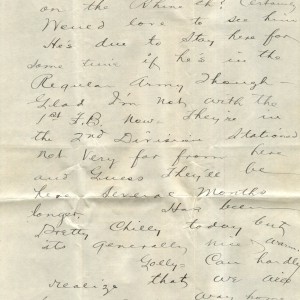 on the Rhine eh? Certainly
Would love to see him
He's due to Stay here for
some time if he's in the
Regular Army Though –
Glad I'm not with the
1st F.B. Now. They're in
the 2nd Division Stationed
not Very far from here
and Guess They'll be
here Several Months
longer. Has been
Pretty Chilly today but
its generally nice & warm.
Golly Can hardly
realize that we are